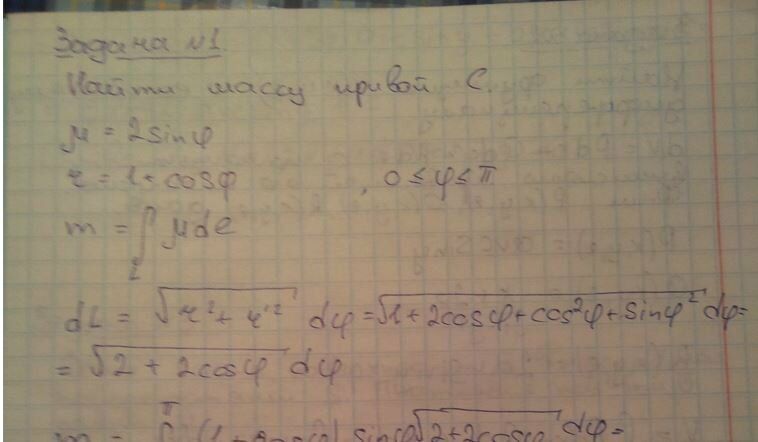 Задача №1.
Найти массу кривой C.
μ = 2sinφ
r = 1 + cosφ , 0 ≤ φ ≤ π
m = ∫_L μdl
dL = √(r² + r'²) dφ = √(1 + 2cosφ + cos²φ + sinφ²) dφ =
= √(2 + 2cosφ) dφ
m = ∫^π (1 + cosφ) sinφ √(2 + 2cosφ) dφ =